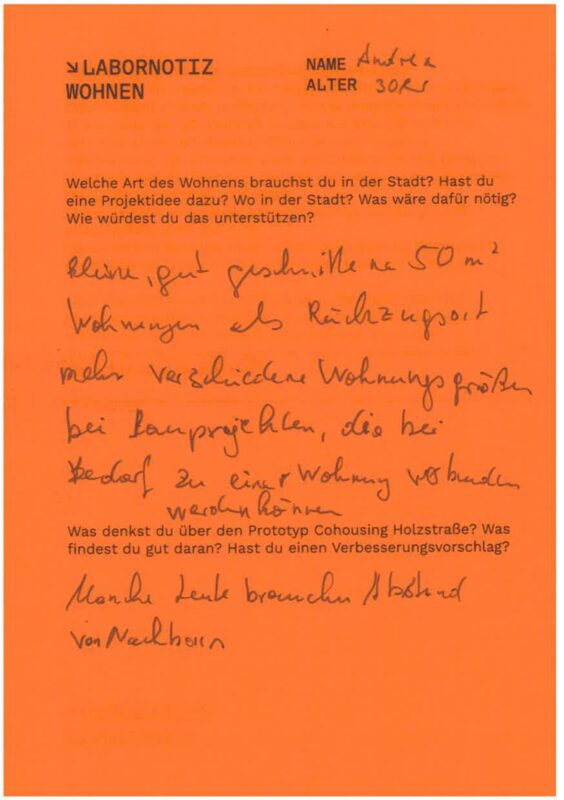 ↘ LABORNOTIZ
WOHNEN
NAME Andrea
ALTER 30er
Welche Art des Wohnens brauchst du in der Stadt? Hast du
eine Projektidee dazu? Wo in der Stadt? Was wäre dafür nötig?
Wie würdest du das unterstützen?
kleine, gut geschnittene 50 m²
Wohnungen als Rückzugsort
mehr verschiedene Wohnungsgrößen
bei Bauprojekten, die bei
Bedarf zu einer Wohnung verbunden
werden können
Was denkst du über den Prototyp Cohousing Holzstraße? Was
findest du gut daran? Hast du einen Verbesserungsvorschlag?
Manche Leute brauchen Abstand
von Nachbarn